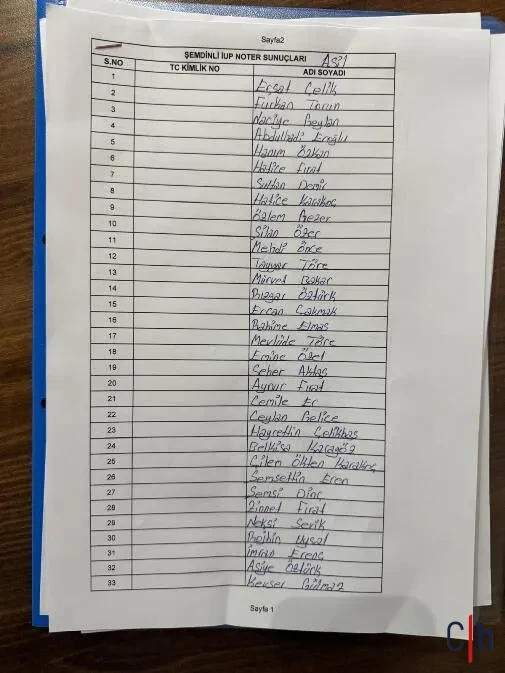 Sayfa2
ŞEMDİNLİ İUP NOTER SUNUÇLARI Asil
S.NO TC KİMLİK NO ADI SOYADI
1 Erşat Çelik
2 Furkan Torun
3 Naciye Beylan
4 Abdulhadi Eroğlu
5 Hanım Özkan
6 Hatice Fırat
7 Sultan Demir
8 Hatice Karakoç
9 Özlem Gezer
10 Silan Özer
11 Mehdi Önce
12 Tayyar Töre
13 Mürvet Bakar
14 Öztürk
15 Ercan Çakmak
16 Rahime Elmas
17 Mevlüde Töre
18 Emine Özel
19 Seher Aktaş
20 Aynur Fırat
21 Cemile Er
22 Ceylan Gelice
23 Hayrettin Çelikbaş
24 Belkisa Karagöz
25 Çilem Ökten Karakoç
26 Şemsettin Eren
27 Şemsi Dinç
28 Zinnet Fırat
29 Nefsi Sevik
30 Rojbin Uysal
31 İmran Erenç
32 Asiye Öztürk
33 Kevser Gülmez
Sayfa 1
C|h